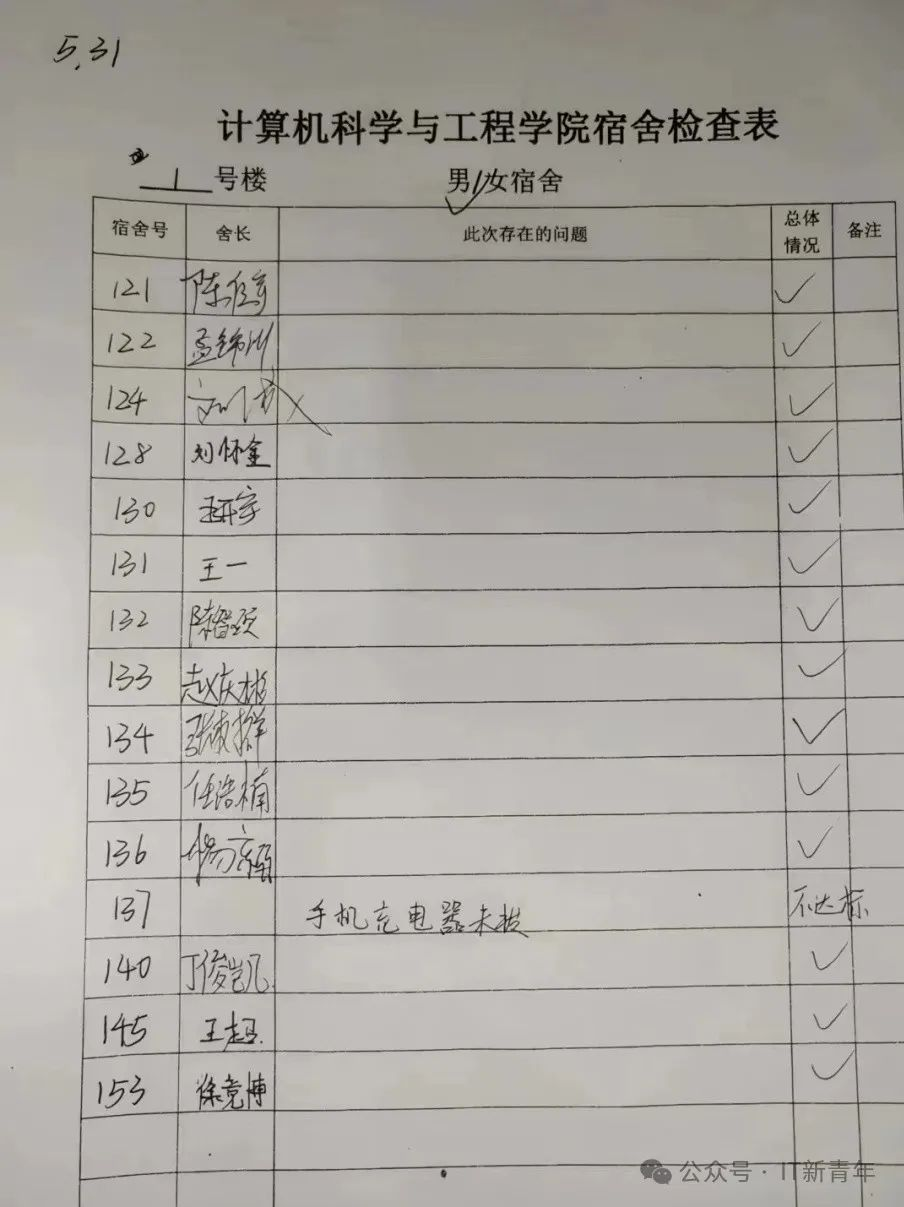 5.31
计算机科学与工程学院宿舍检查表
1 号楼 男/女宿舍
宿舍号 舍长 此次存在的问题 总体情况 备注
121 ✓
122 孟锦州 ✓
124 ✓
128 刘怀金 ✓
130 ✓
131 王一 ✓
132 陈智颂 ✓
133 赵庆彬 ✓
134 ✓
135 任浩楠 ✓
136 ✓
137 手机充电器未拔 不达标
140 丁俊凯 ✓
145 王超 ✓
153 徐竟博 ✓
公众号·IT新青年